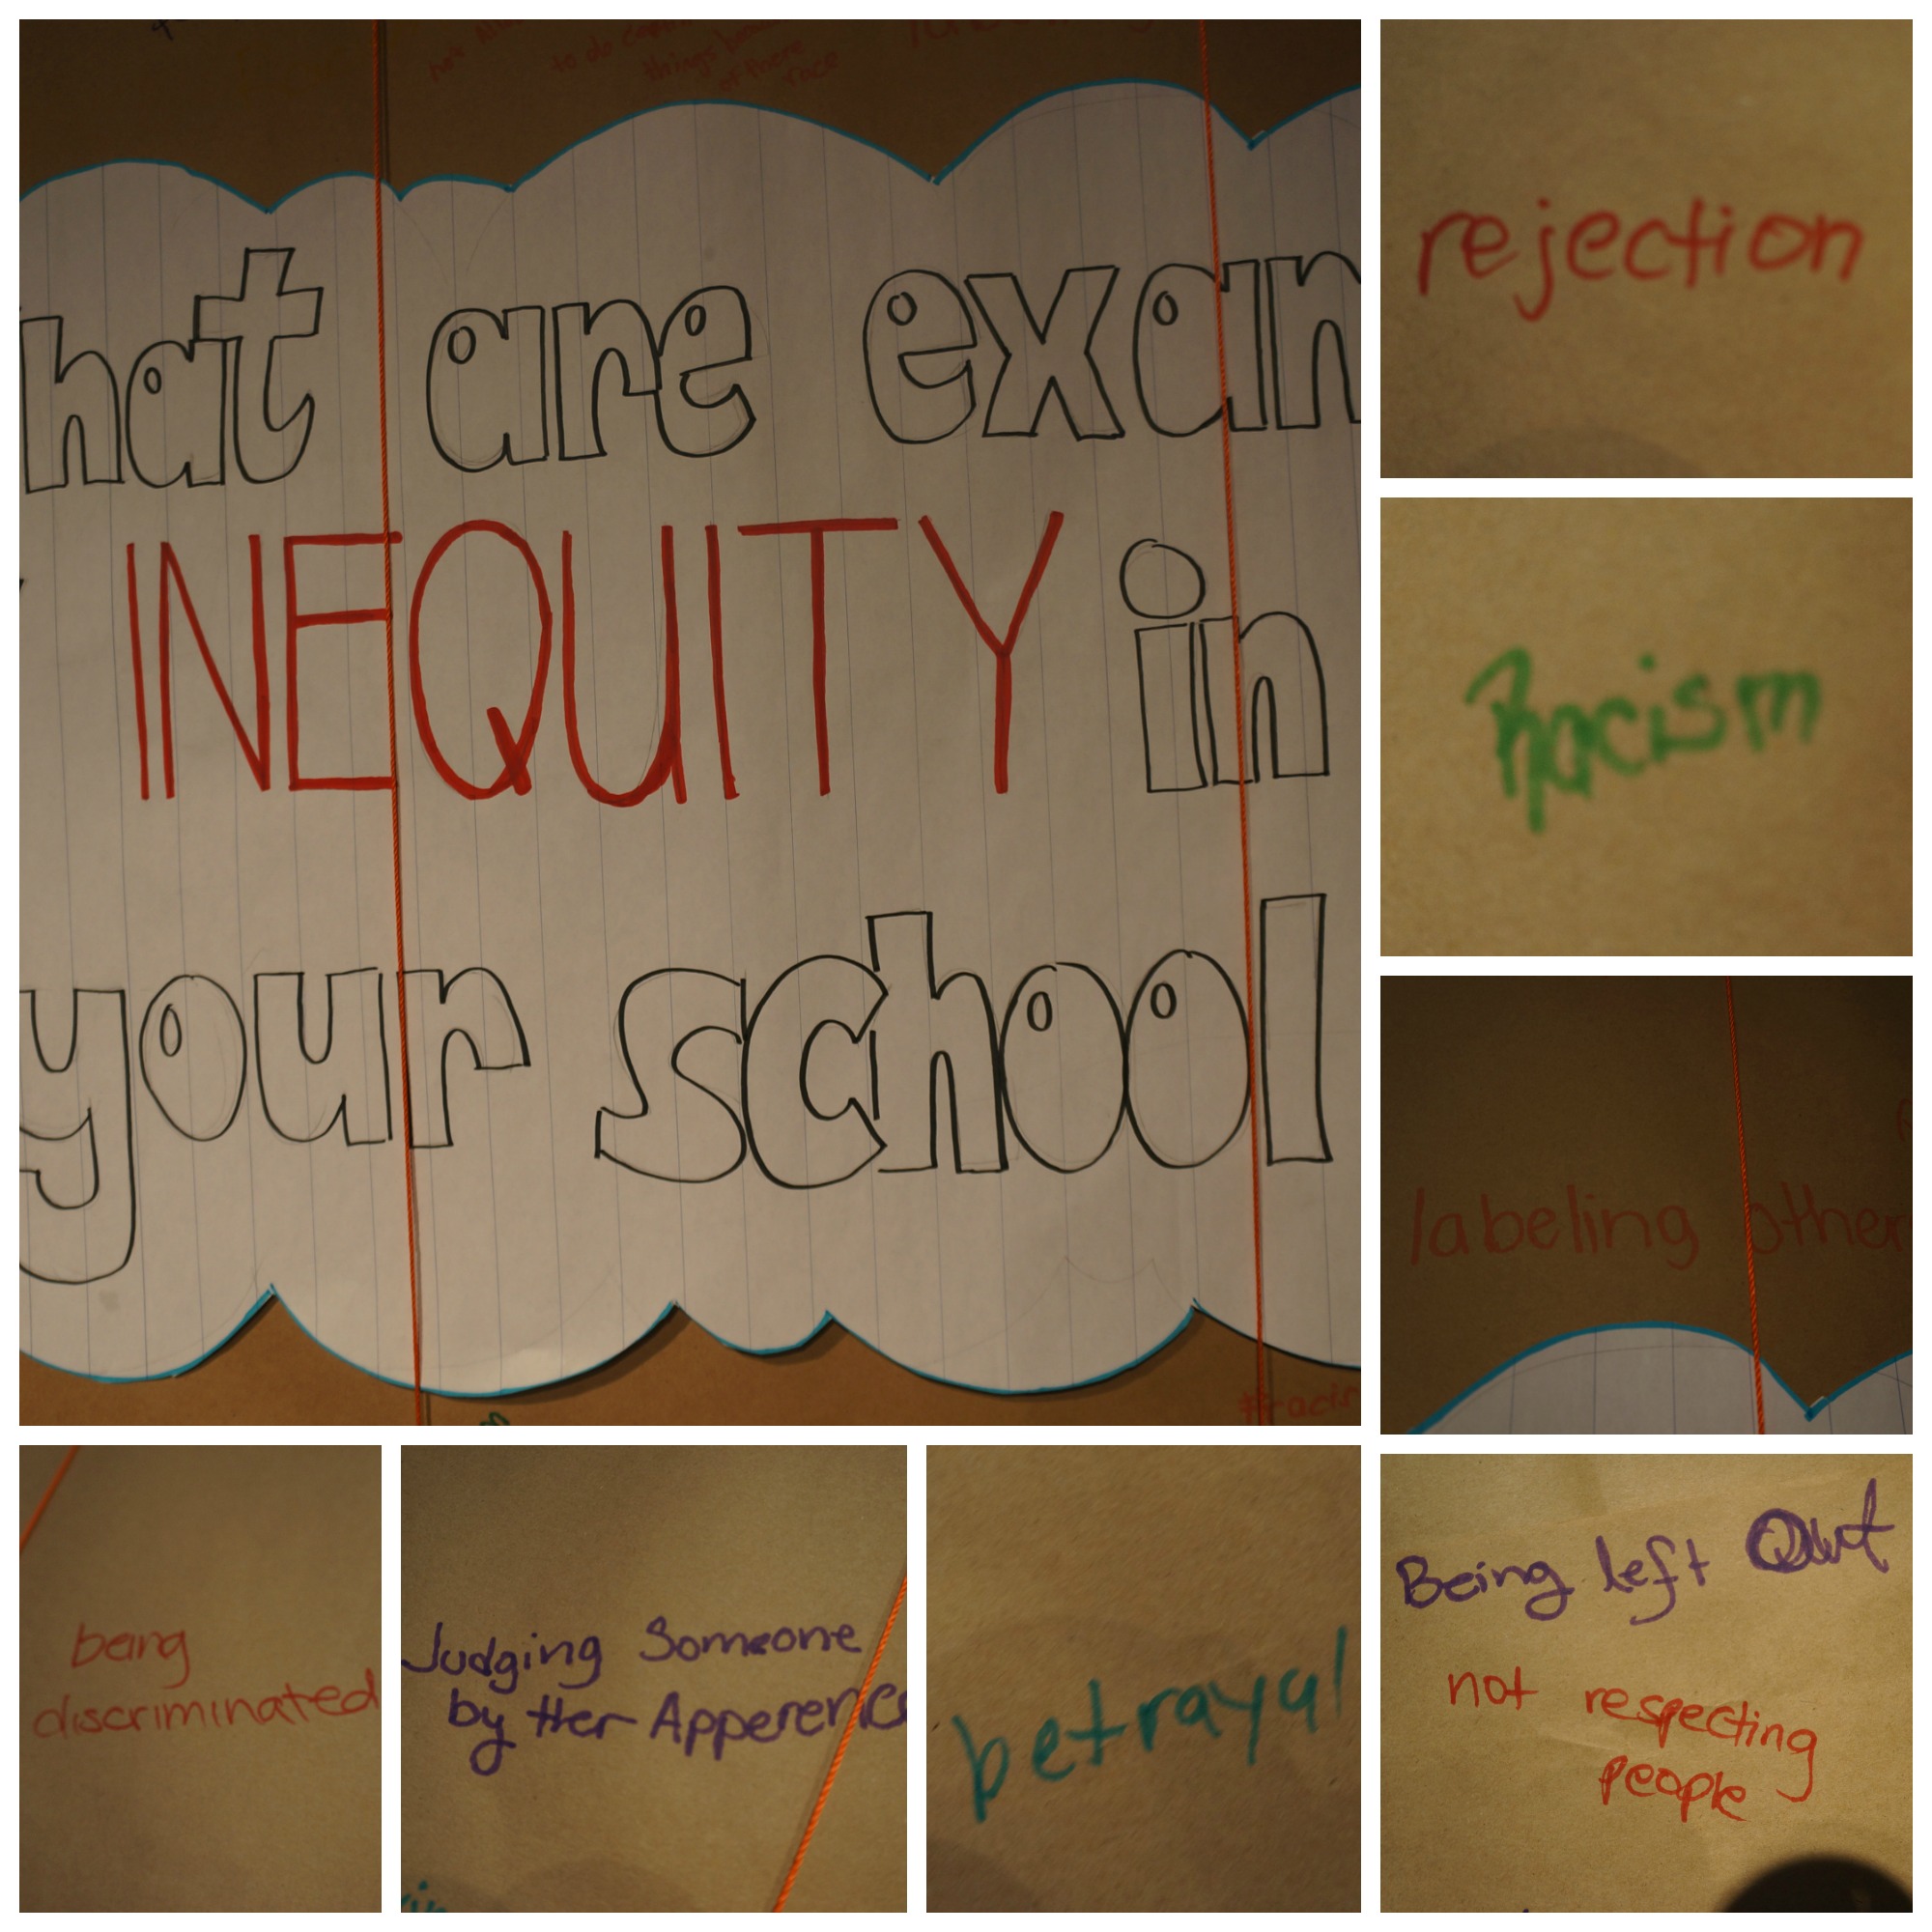 hat are exam
INEQUITY in
your school
to do
things
of there
race
#racis
rejection
Racism
labeling other
Being left Out
not respecting
people
being
discriminated
Judging Someone
by Her Apperence
betrayal